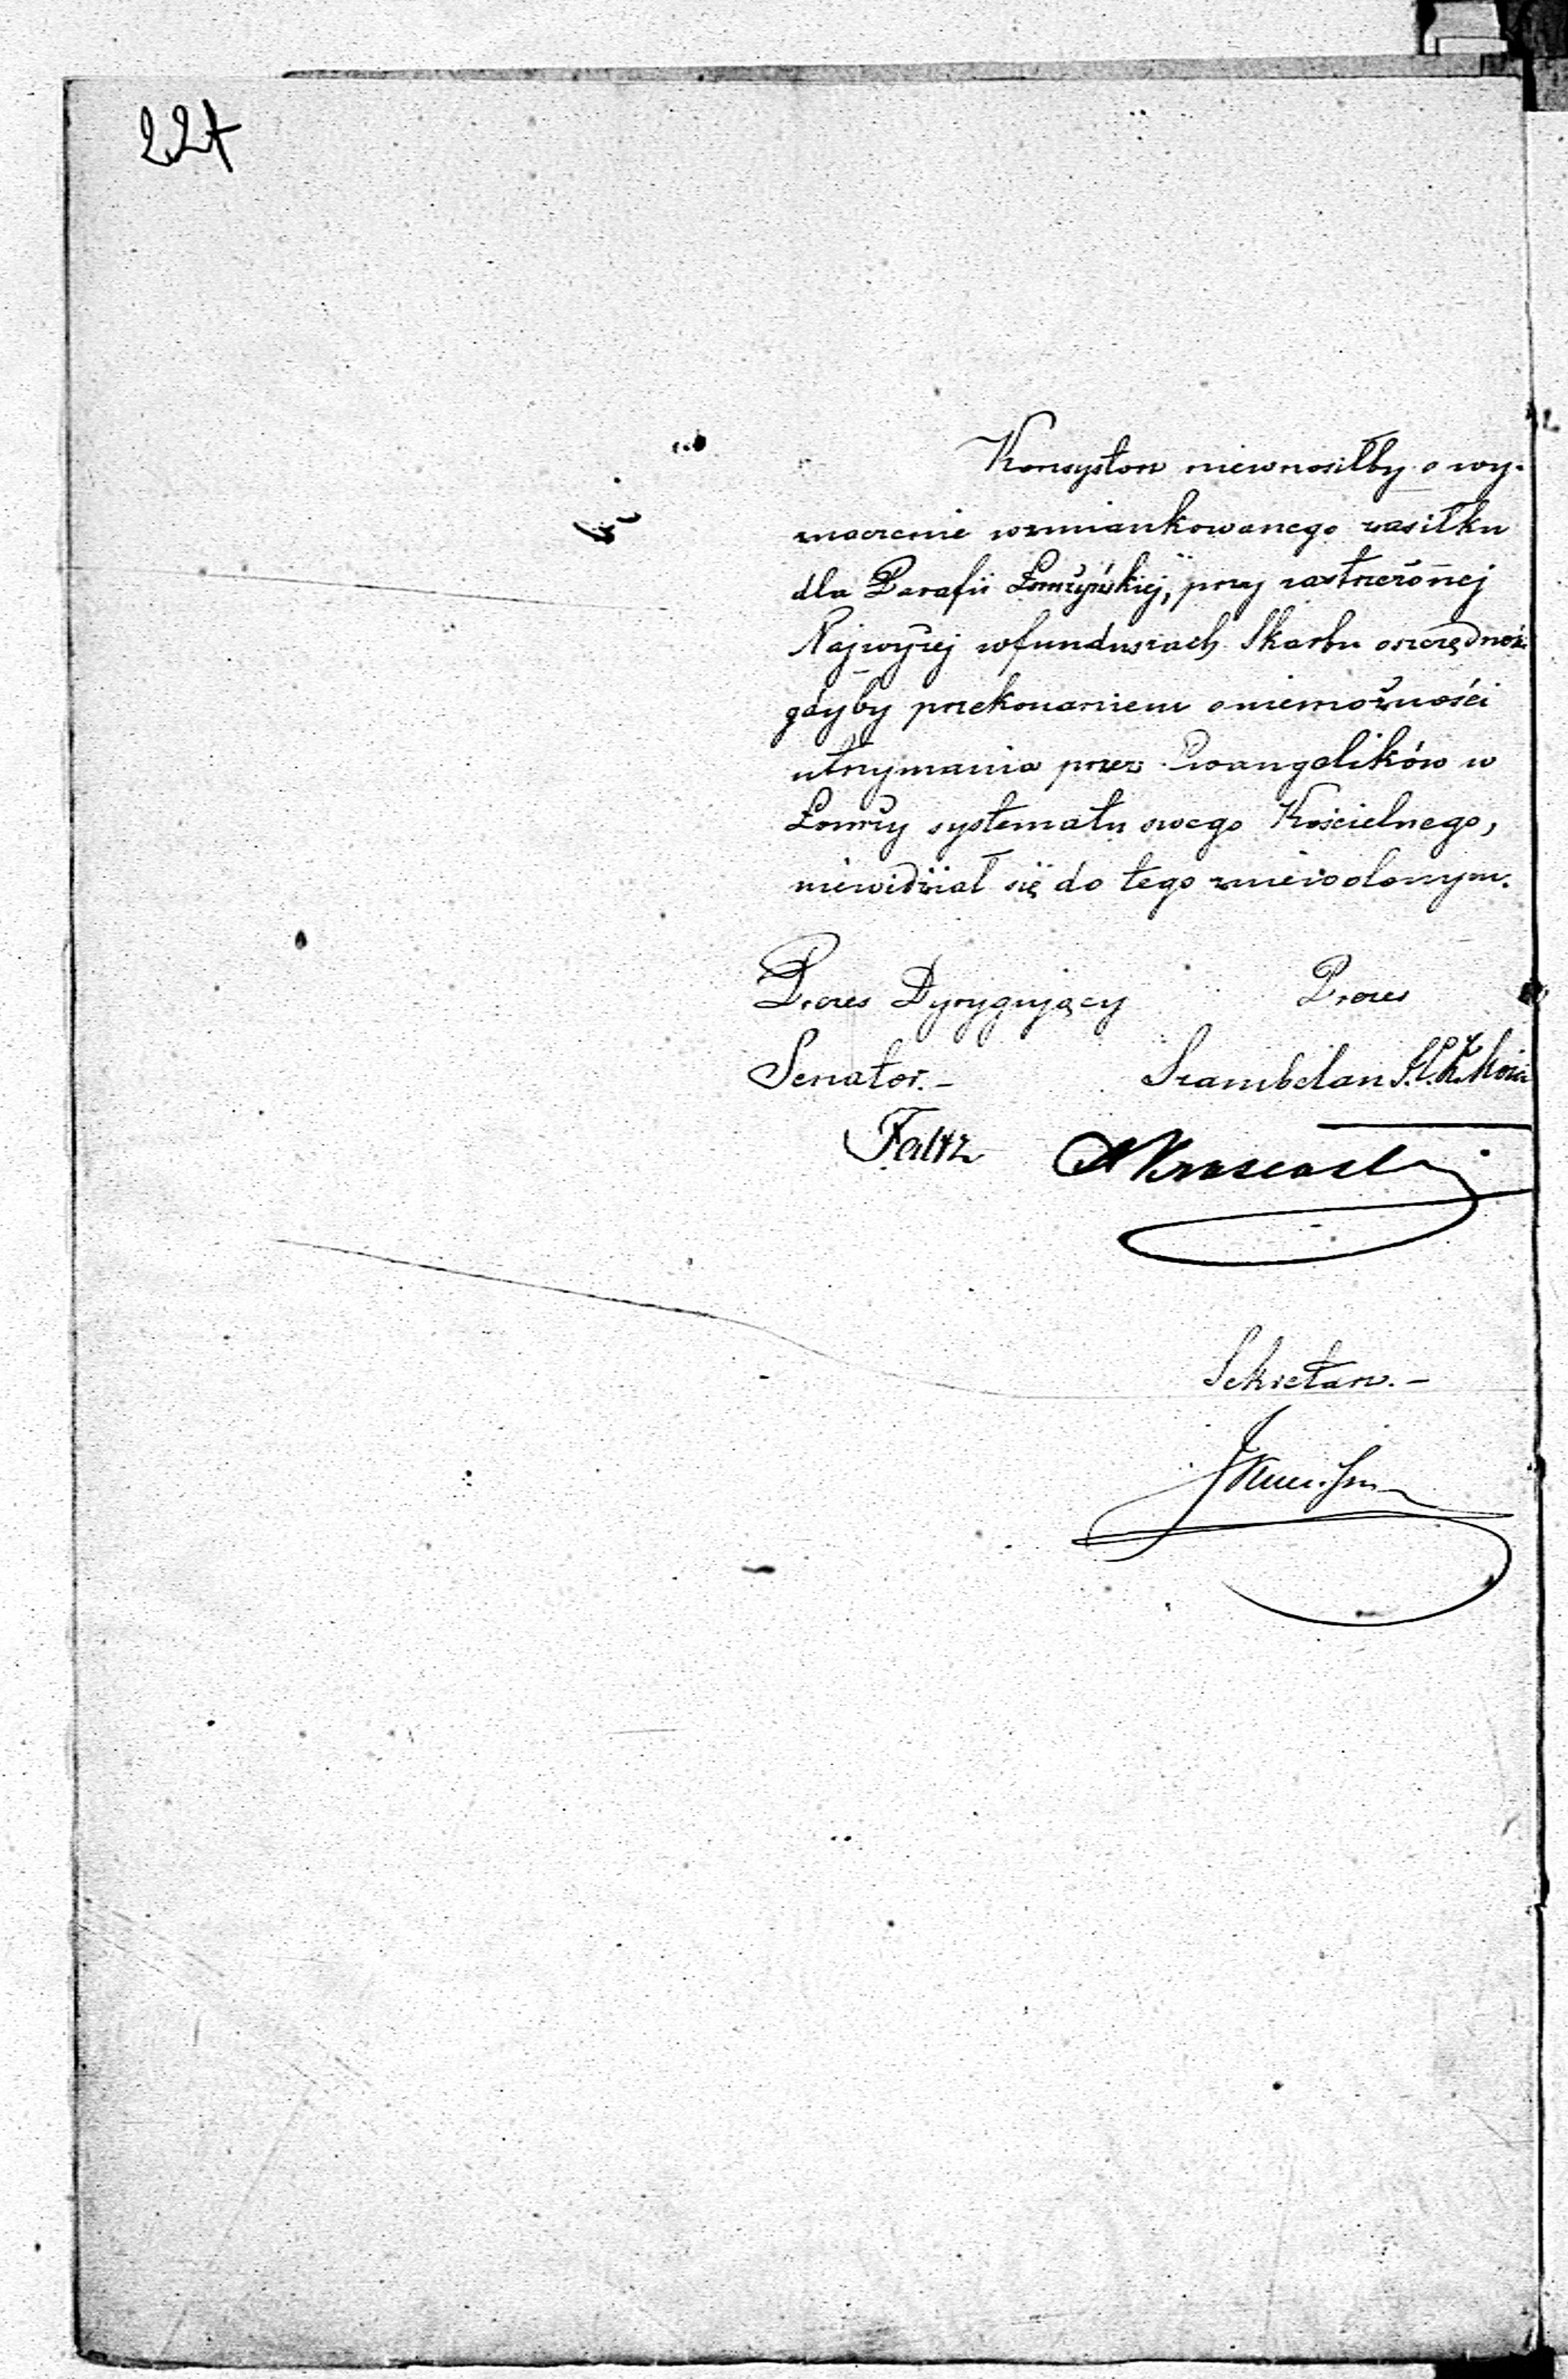 224
Konsystorz niewnosiłby o wy-
znaczenie wzmiankowanego zasiłku
dla Parafii Łomżyńskiej, przy zastrzeżonej
Najwyżej w funduszach Skarbu oszczędności
gdyby przekonaniem o niemożności
utrzymania przez Ewangelików w
Łomży systematu swego Kościelnego,
niewidział się do tego zniewolonym.
Prezes Dyrygujący Prezes
Senator.- Szambelan
Faltz
Sekretarz.-